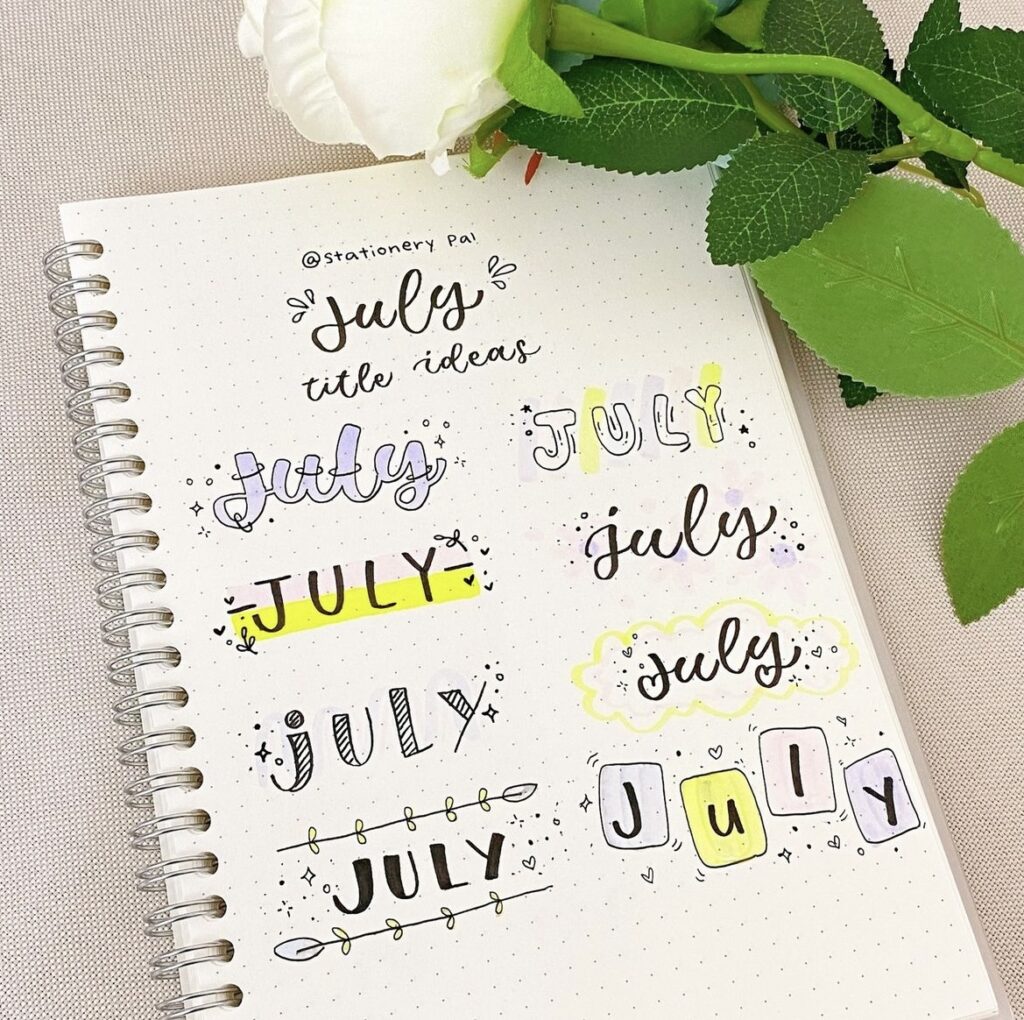 @stationery Pal
july
title ideas
july
JULY
JULY
july
july
jULY
JULY
JulY